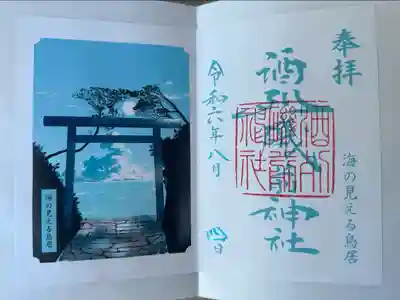 奉拝
海の見える鳥居
酒列磯前神社
酒列
磯前
神社
令和六年八月四日
海の見える鳥居